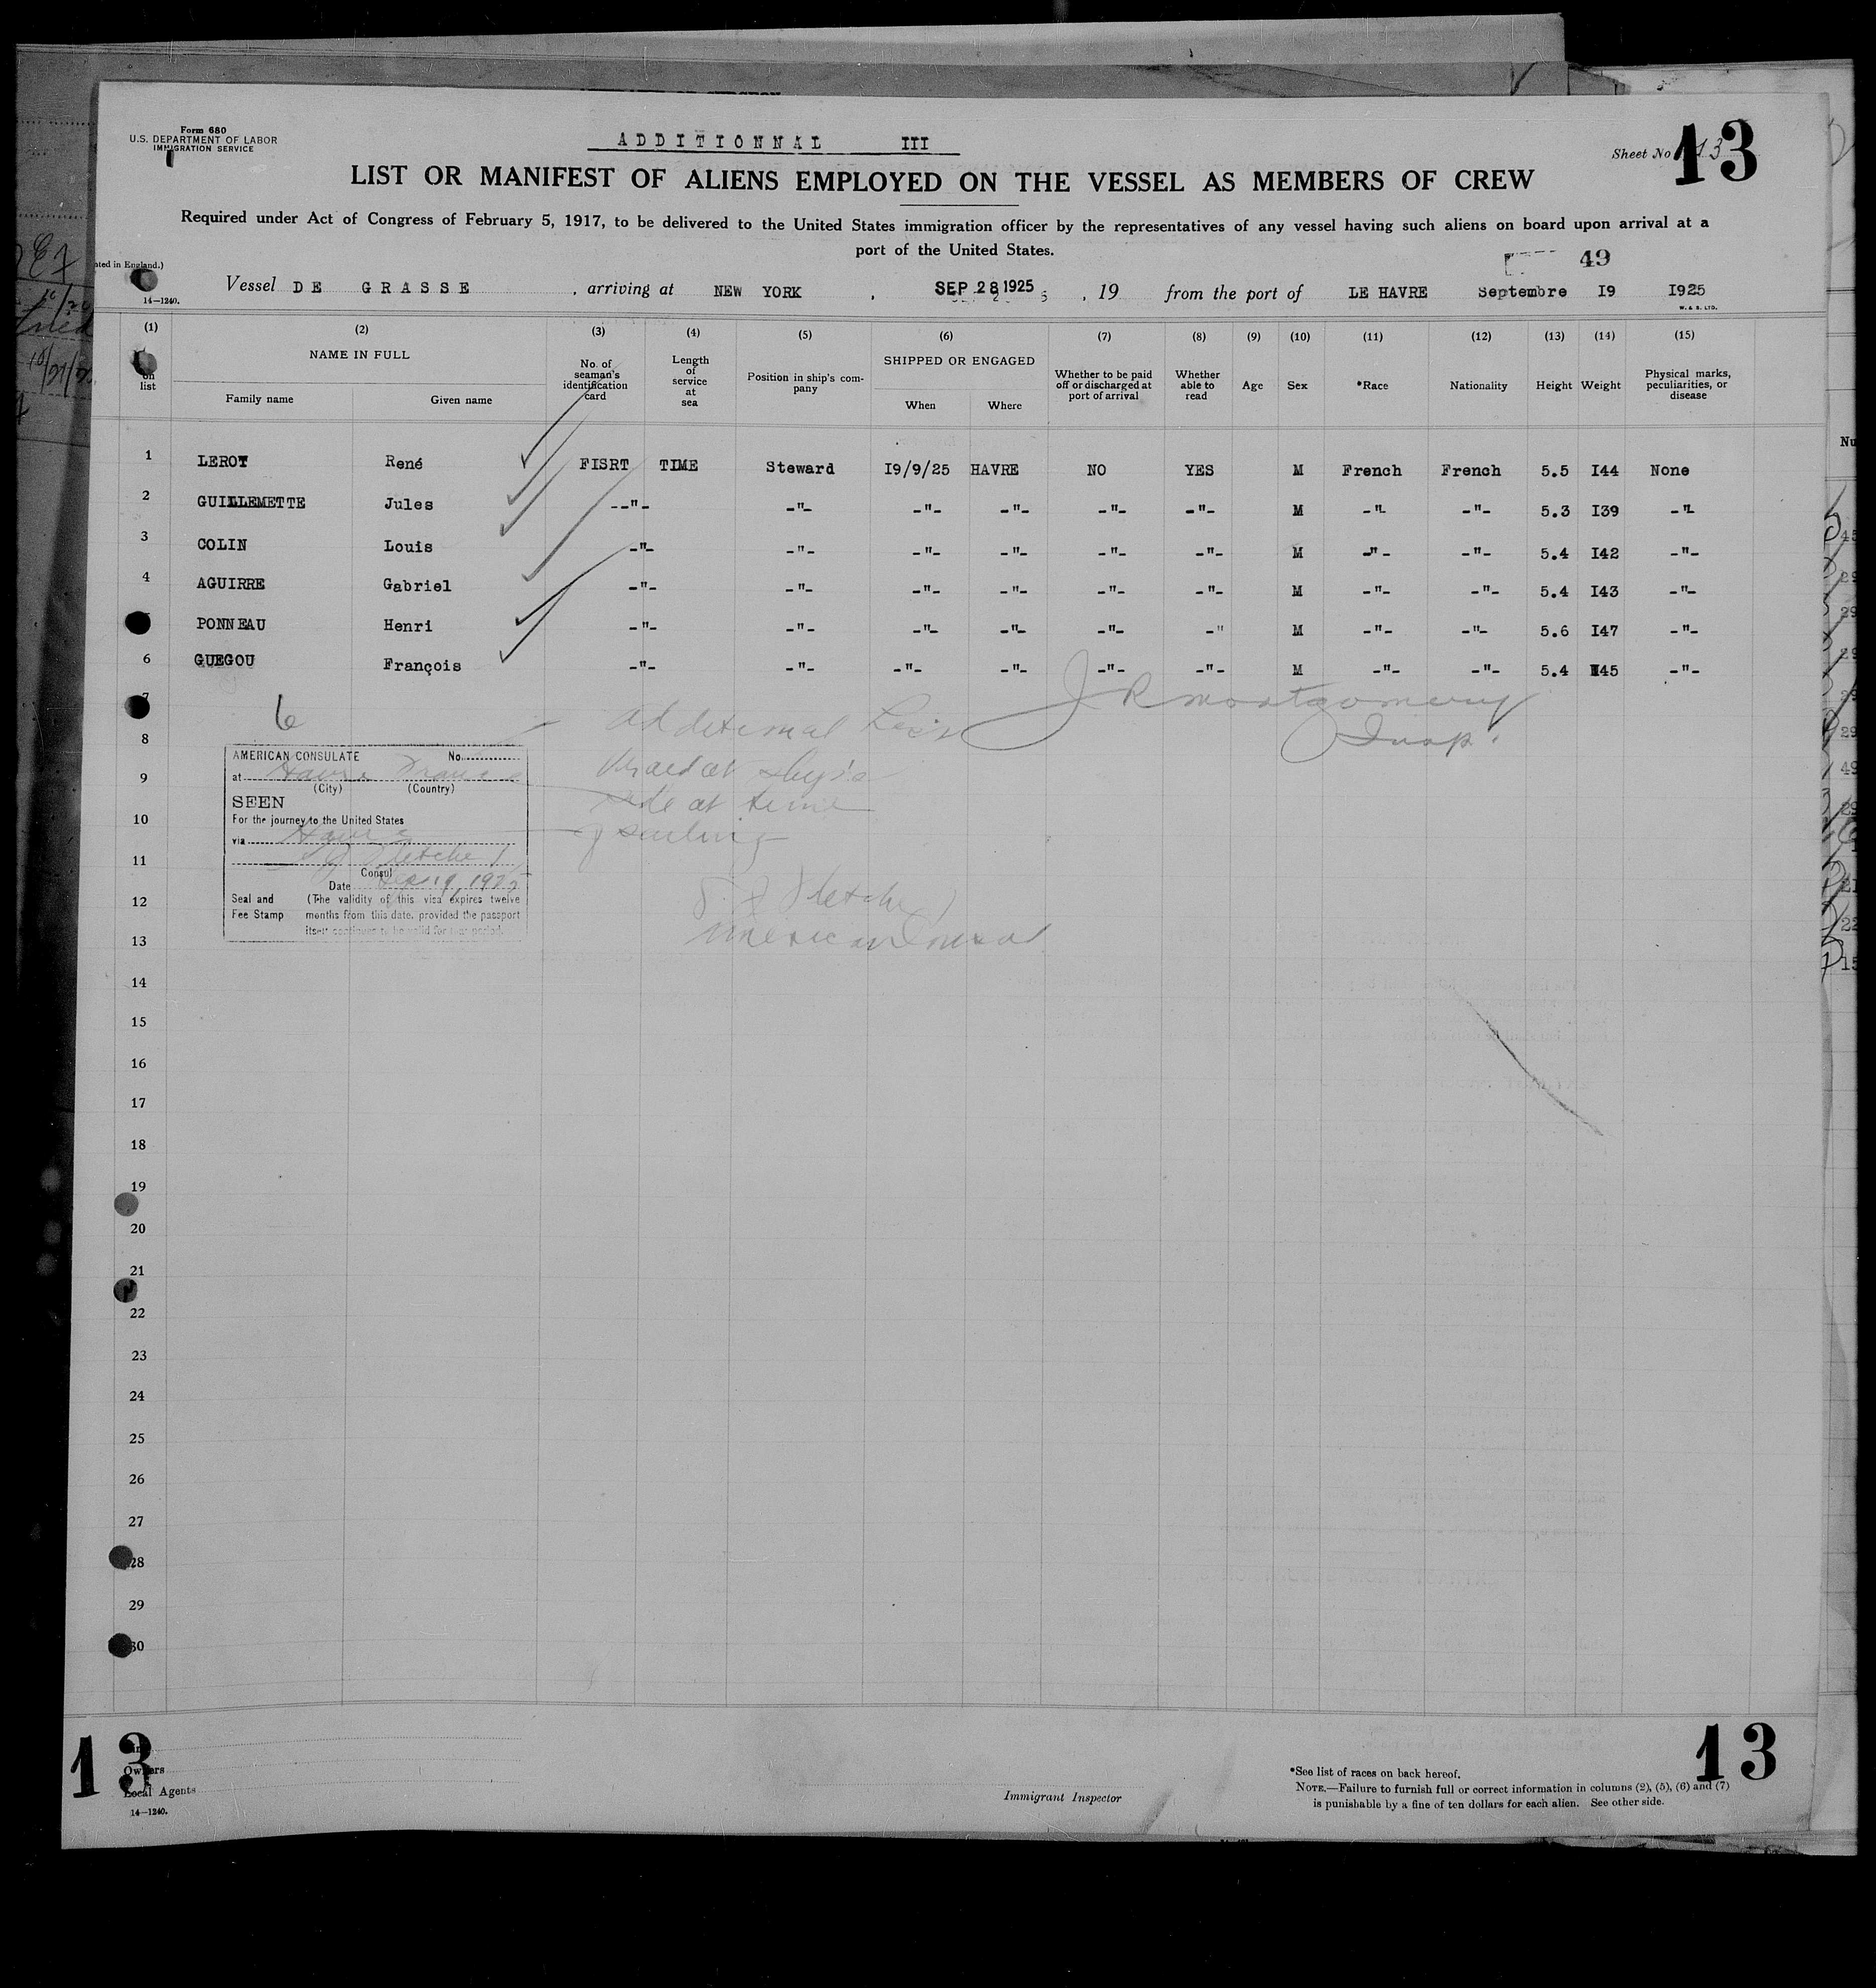 Form 680
U.S. DEPARTMENT OF LABOR
IMMIGRATION SERVICE
ADDITIONNAL III
Sheet No 13
13
LIST OR MANIFEST OF ALIENS EMPLOYED ON THE VESSEL AS MEMBERS OF CREW
Required under Act of Congress of February 5, 1917, to be delivered to the United States immigration officer by the representatives of any vessel having such aliens on board upon arrival at a
port of the United States.
49
Vessel DE GRASSE , arriving at NEW YORK , SEP 28 1925 , 19 from the port of LE HAVRE Septembre I9 I925
14—1240.
W. & S. LTD.
(1) (2) (3) (4) (5) (6) (7) (8) (9) (10) (11) (12) (13) (14) (15)
on list NAME IN FULL No. of seaman's identification card Length of service at sea Position in ship's company SHIPPED OR ENGAGED Whether to be paid off or discharged at port of arrival Whether able to read Age Sex *Race Nationality Height Weight Physical marks, peculiarities, or disease
Family name Given name When Where
1 LEROY René FISRT TIME Steward I9/9/25 HAVRE NO YES M French French 5.5 I44 None
2 GUILLEMETTE Jules --"- -"- -"- -"- -"- -"- M -"- -"- 5.3 I39 -"-
3 COLIN Louis -"- -"- -"- -"- -"- -"- M -"- -"- 5.4 I42 -"-
4 AGUIRRE Gabriel -"- -"- -"- -"- -"- -"- M -"- -"- 5.4 I43 -"-
PONNEAU Henri -"- -"- -"- -"- -"- -" M -"- -"- 5.6 I47 -"-
6 GUEGOU François -"- -"- -"- -"- -"- -"- M -"- -"- 5.4 I45 -"-
7
6
J R Montgomery
Insp.
additional
at time
of sailing
American Consul
8
9
10
11
12
13
AMERICAN CONSULATE No.
at Havre France
(City) (Country)
SEEN
For the journey to the United States
via Havre
Consul
Date Sep 19, 1925
Seal and Fee Stamp (The validity of this visa expires twelve
months from this date, provided the passport
itself continues to be valid for that period.
14
15
16
17
18
19
20
21
22
23
24
25
26
27
28
29
30
13
Owners
Local Agents
14—1240.
Immigrant Inspector
*See list of races on back hereof.
NOTE.—Failure to furnish full or correct information in columns (2), (5), (6) and (7)
is punishable by a fine of ten dollars for each alien. See other side.
13